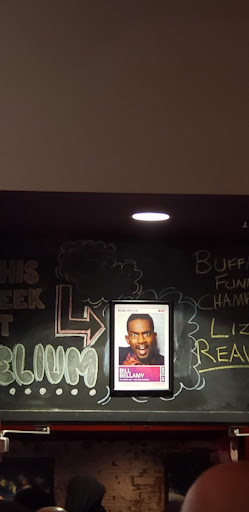 HIS
EEK
T
ELIUM
BILL
BELLAMY
BUFF
FUNN
CHAM
LIZ
REA